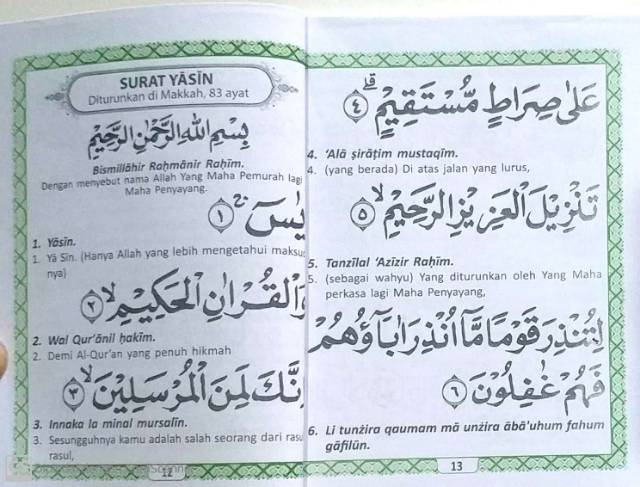 SURAT YĀSĪN
Diturunkan di Makkah, 83 ayat
بِسْمِ اللهِ الرَّحْمٰنِ الرَّحِيْمِ
Bismillāhir Raḥmānir Raḥīm.
Dengan menyebut nama Allah Yang Maha Pemurah lagi
Maha Penyayang.
يٰسٓ ۚ ١
1. Yāsīn.
1. Yā Sīn. (Hanya Allah yang lebih mengetahui maksud
nya)
وَالْقُرْاٰنِ الْحَكِيْمِۙ ٢
2. Wal Qur'ānil ḥakīm.
2. Demi Al-Qur'an yang penuh hikmah
اِنَّكَ لَمِنَ الْمُرْسَلِيْنَۙ ٣
3. Innaka la minal mursalīn.
3. Sesungguhnya kamu adalah salah seorang dari rasu
rasul,
12
عَلٰى صِرَاطٍ مُّسْتَقِيْمٍۗ ٤
4. 'Alā ṣirāṭim mustaqīm.
4. (yang berada) Di atas jalan yang lurus,
تَنْزِيْلَ الْعَزِيْزِ الرَّحِيْمِۙ ٥
5. Tanzīlal 'Azīzir Raḥīm.
5. (sebagai wahyu) Yang diturunkan oleh Yang Maha
perkasa lagi Maha Penyayang,
لِتُنْذِرَ قَوْمًا مَّآ اُنْذِرَ اٰبَاۤؤُهُمْ
فَهُمْ غٰفِلُوْنَ ٦
6. Li tunżira qaumam mā unżira ābā'uhum fahum
gāfilūn.
13